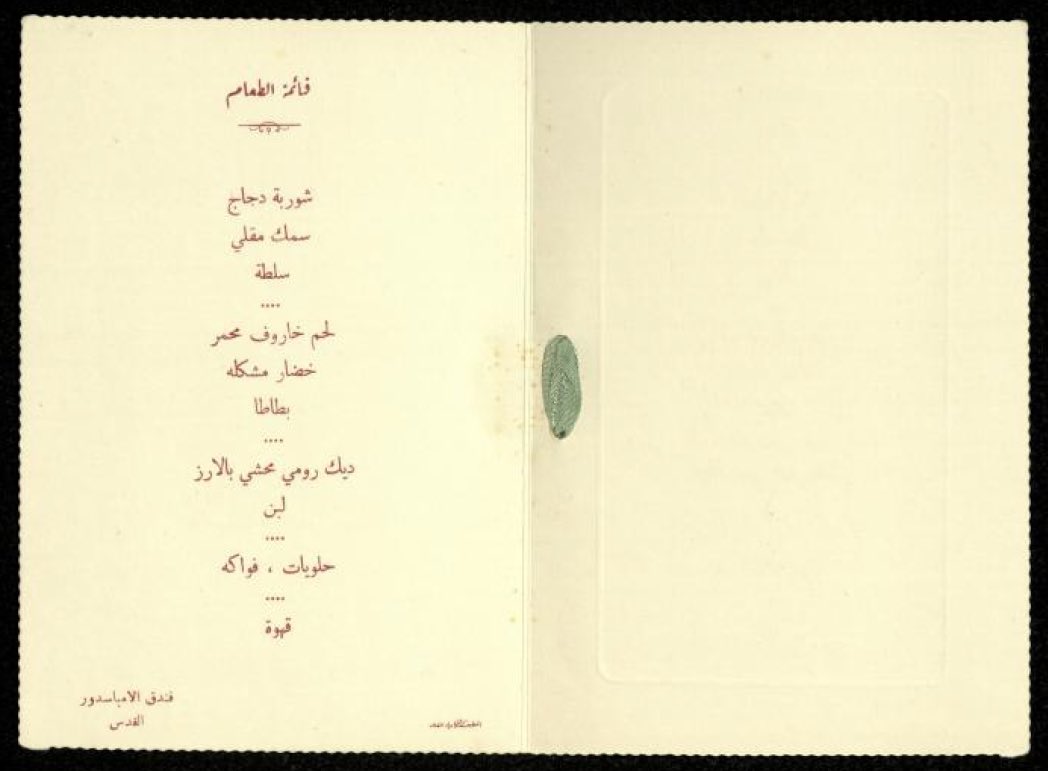 قائمة الطعام
شوربة دجاج
سمك مقلي
سلطة
....
لحم خاروف محمر
خضار مشكله
بطاطا
....
ديك رومي محشي بالارز
لبن
....
حلويات ، فواكه
....
قهوة
فندق الامباسدور
القدس